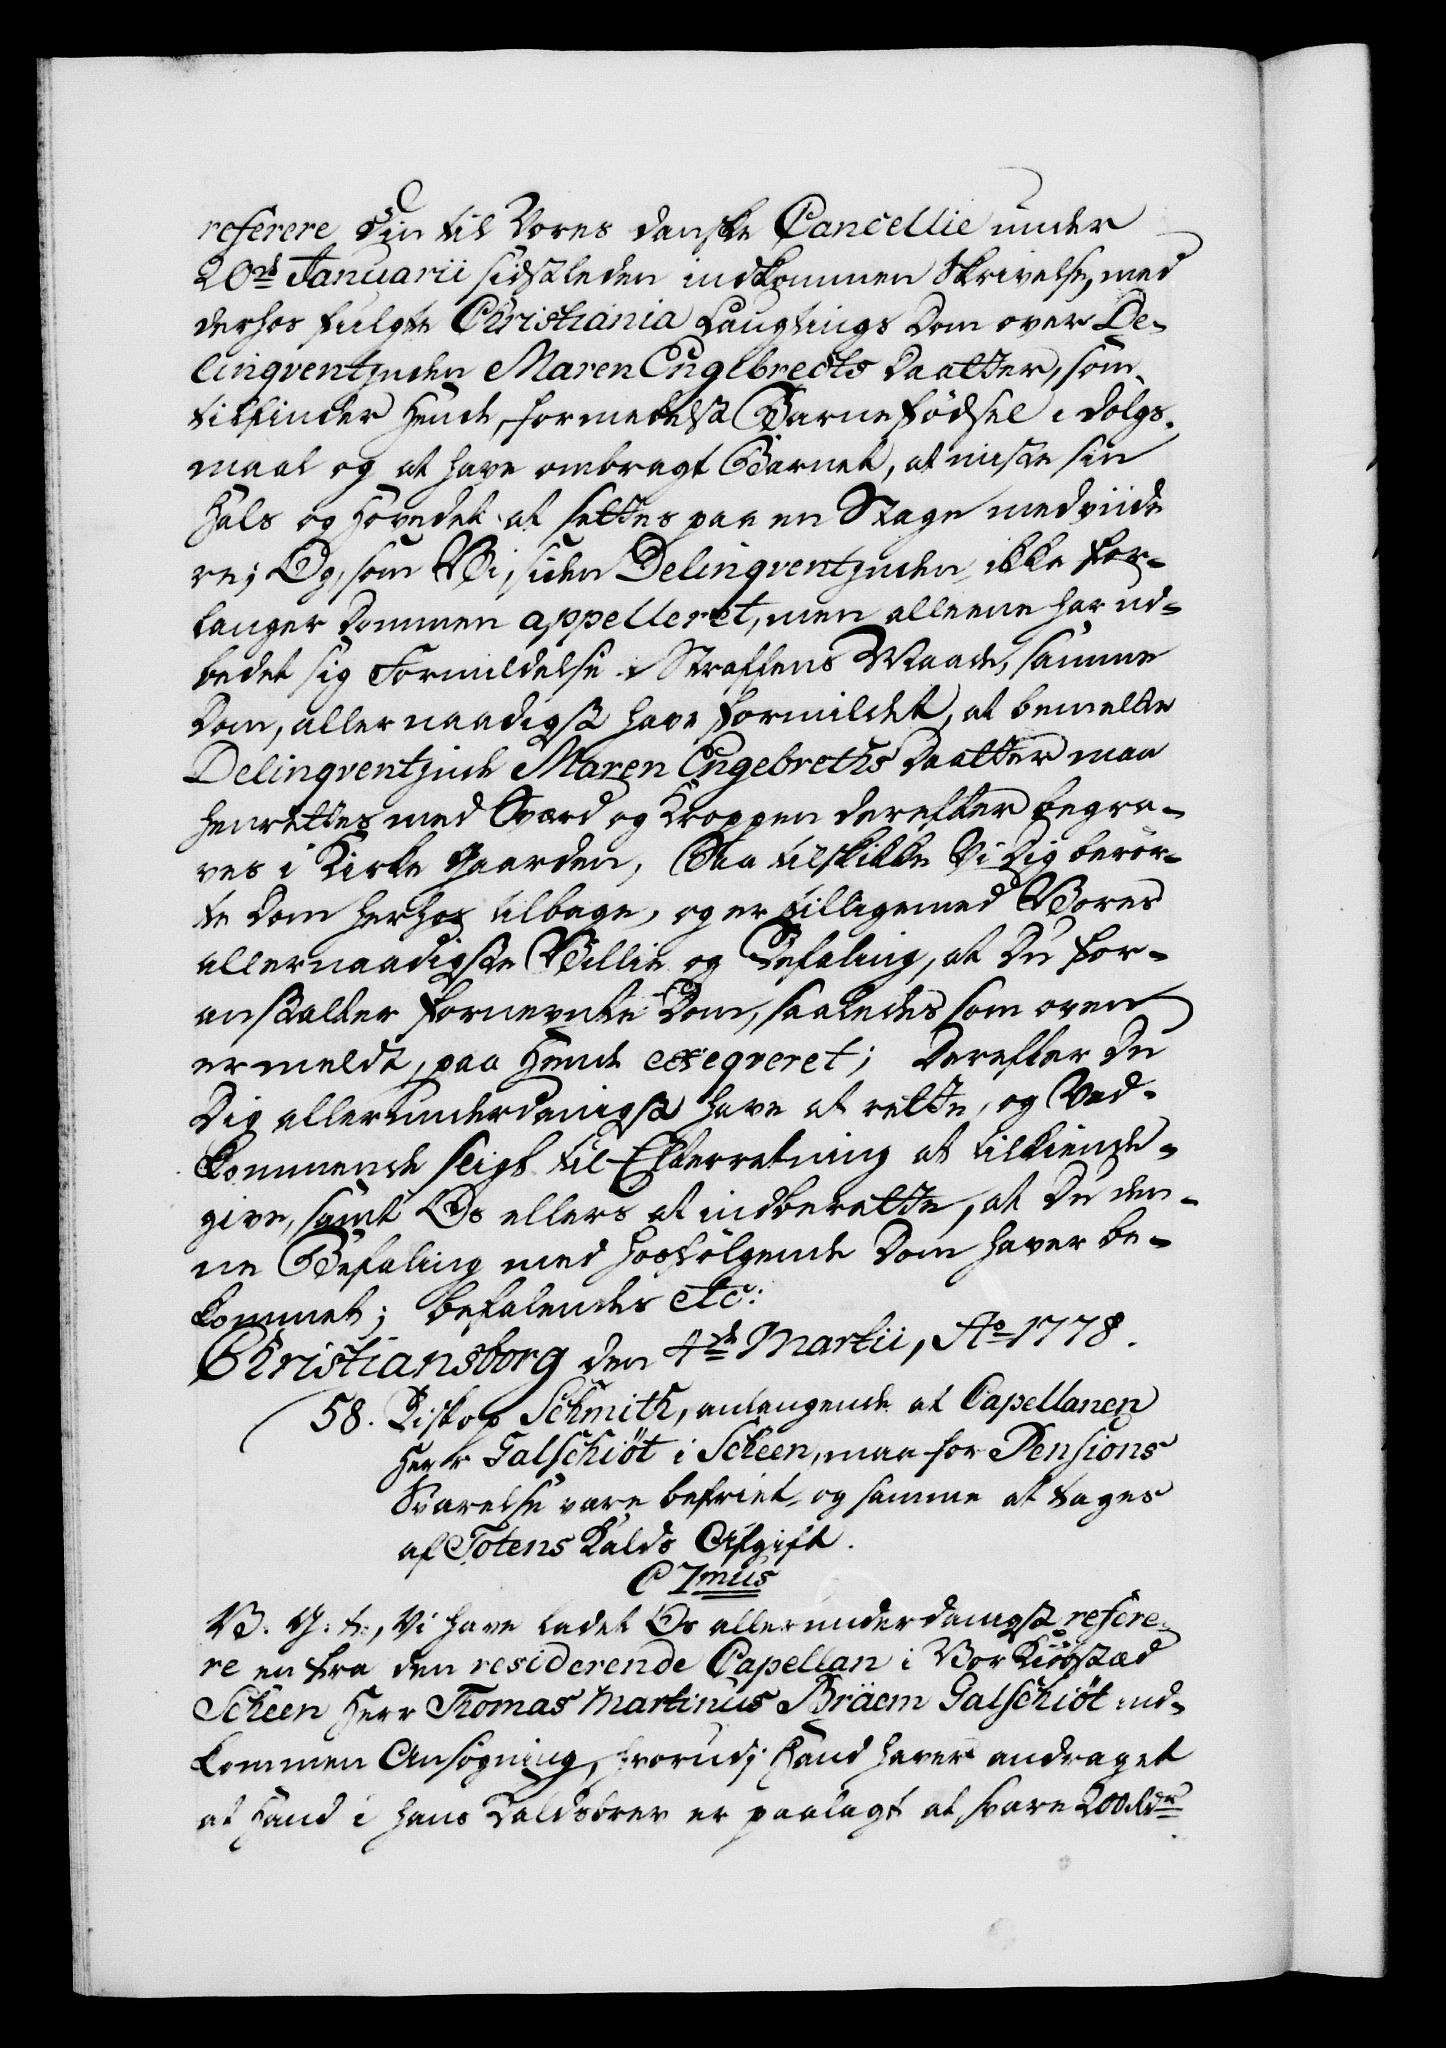 referere Din til Vores danske Cancellie under
20de Januarii sidstleden indkommen Skrivelse, med
derhos fulgte Christiania Laugtings Dom over De-
linqventinden Maren Englbrects Daatter, som
tilfinder Hende, formedelst Barnefödsel i dolgs-
maal og at have ombragt Barnet, at miste sin
Hals og Hovedet at settes paa en Stage med viide-
re; Og, som Vi, siden Delinqventinden ikke for-
langer Dommen appelleret, men alleene har ud-
bedet sig Formildelse i Straffens Maade, samme
Dom, allernaadigst have formildet, at bemelte
Delinqventinde Maren Engebreths Daatter maa
henrettes med Sværd og Kroppen derefter begra-
ves i Kirke Gaarden, Saa tilskikke Vi Dig berör-
te Dom herhos tilbage, og er tilligemed Vores
allernaadigste Villie og Befaling, at Du for-
anstalter fornevnte Dom, saaledes som oven
ermeldt, paa Hende exeqveret; Derefter Du
Dig allerunderdanigst have at rette, og Ved-
kommende sligt til Efterretning at tilkiende-
give, samt Os ellers at indberette, at Du den-
ne Befaling med hosfölgende Dom haver be-
kommet; befalendes etc:
Christiansborg den 4de Martii, Ao 1778.
58. Biskop Schmith, anlangende at Capellanen
Herr Galschiöt i Scheen, maa for Pensions
Svarelse være befriet, og samme at tages
af Totens Kalds Afgift.
C 7mus
V. G. t., Vi have ladet Os allerunderdanigst refere-
re en fra den residerende Capellan i Vor Kiöbstæd
Scheen Herr Thomas Martinus Bräem Galschiöt ind-
kommen Ansøgning, hvorudj Hand haver andraget
at Hand i hans Kaldsbrev er paalagt at svare 200 Rdr